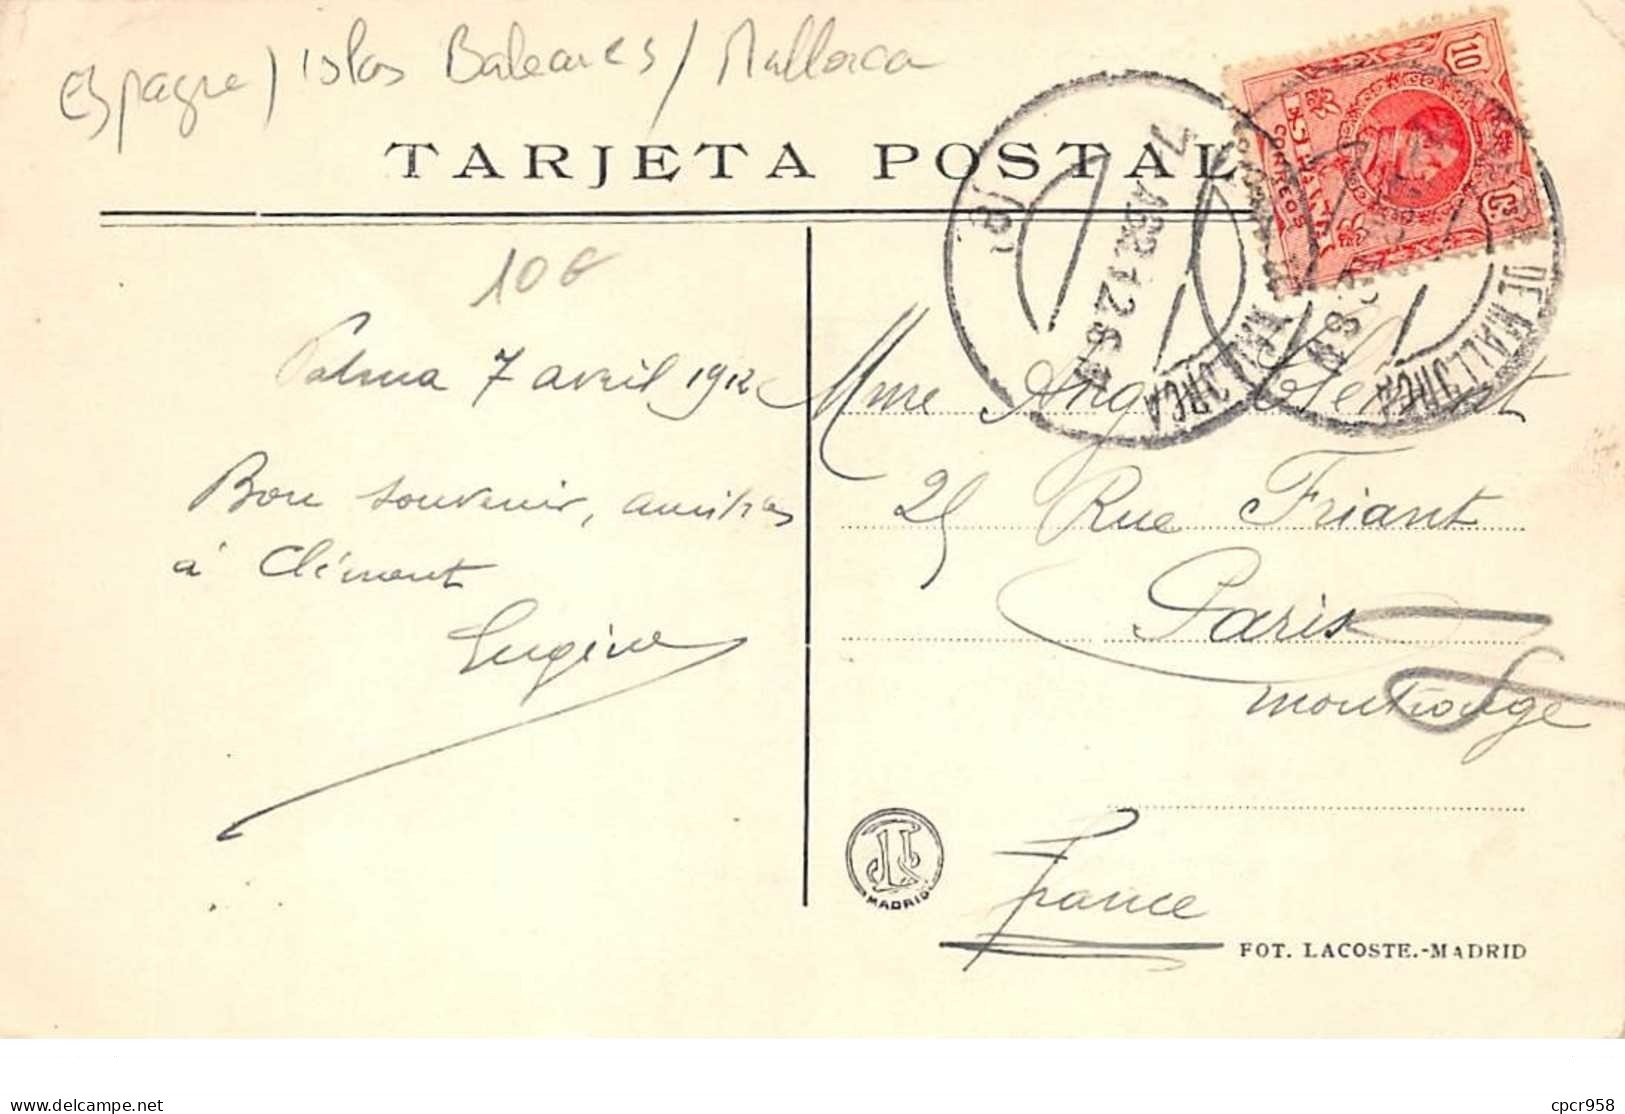 Espagne / Islas Baleares / Mallorca
TARJETA POSTAL
10 €
Palma 7 avril 1912
Bon souvenir, amitiés
à Clément
Eugène
10
Cs
ESPAÑA
CORREOS
(8)
7 ABR 12 6
DE MALLORCA
DE MALLORCA
Mme Ange Clément
25 Rue Friant
Paris
Montrouge
France
MADRID
FOT. LACOSTE.-MADRID
delcampe.net
cpcr958